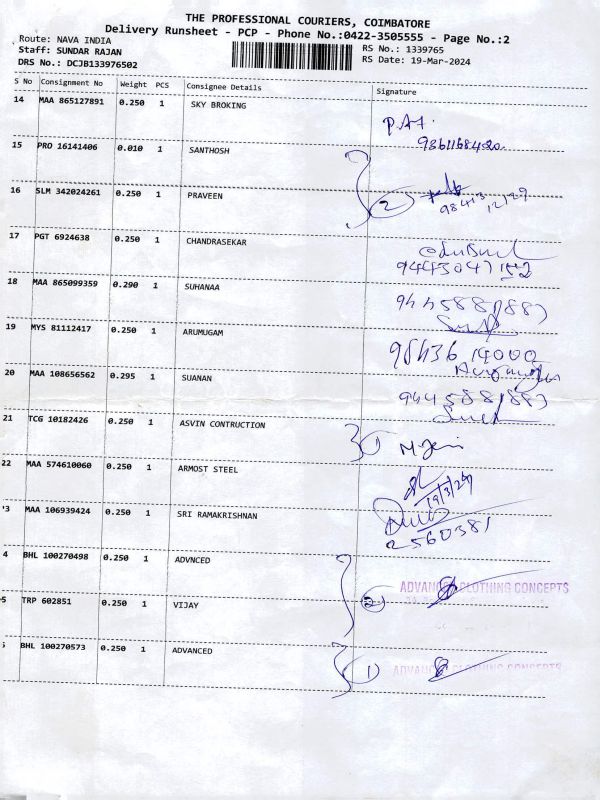 THE PROFESSIONAL COURIERS, COIMBATORE
Delivery Runsheet - PCP - Phone No.:0422-3505555 - Page No.:2
Route: NAVA INDIA RS No.: 1339765
Staff: SUNDAR RAJAN RS Date: 19-Mar-2024
DRS No.: DCJB133976502
S No Consignment No Weight PCS Consignee Details Signature
14 MAA 865127891 0.250 1 SKY BROKING
P.A7.
15 PRO 16141406 0.010 1 SANTHOSH
16 SLM 342024261 0.250 1 PRAVEEN
2
17 PGT 6924638 0.250 1 CHANDRASEKAR
18 MAA 865099359 0.290 1 SUHANAA
19 MYS 81112417 0.250 1 ARUMUGAM
98436 14000
20 MAA 108656562 0.295 1 SUANAN
21 TCG 10182426 0.250 1 ASVIN CONTRUCTION
1
22 MAA 574610060 0.250 1 ARMOST STEEL
19/3/24
'3 MAA 106939424 0.250 1 SRI RAMAKRISHNAN
2560381
4 BHL 100270498 0.250 1 ADVNCED
ADVANCED CLOTHING CONCEPTS
5 TRP 602851 0.250 1 VIJAY
2
BHL 100270573 0.250 1 ADVANCED
1 ADVANCED CLOTHING CONCEPTS